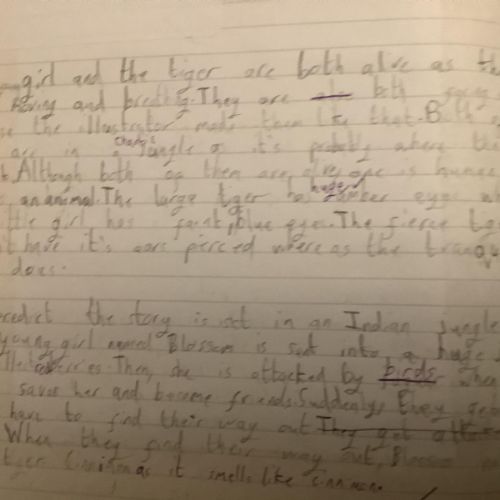 girl and the tiger are both alive as the
moving and breathing. They are both
the illustrator made them like that. Both
are in a jungle as it's probably where the
Although both of them are alive one is human
an animal. The large tiger has huge amber eyes
little girl has faint, blue eyes. The fierce
have it's ears pierced where as the tranquil
does.
predict the story is set in an Indian jungle
young girl named Blossom is sent into a huge
berries. Then, she is attacked by birds when
saves her and become friends. Suddenly, they get
have to find their way out. They get
When they find their way out, Blossom
tiger Cinnimon as it smells like cinnamon.